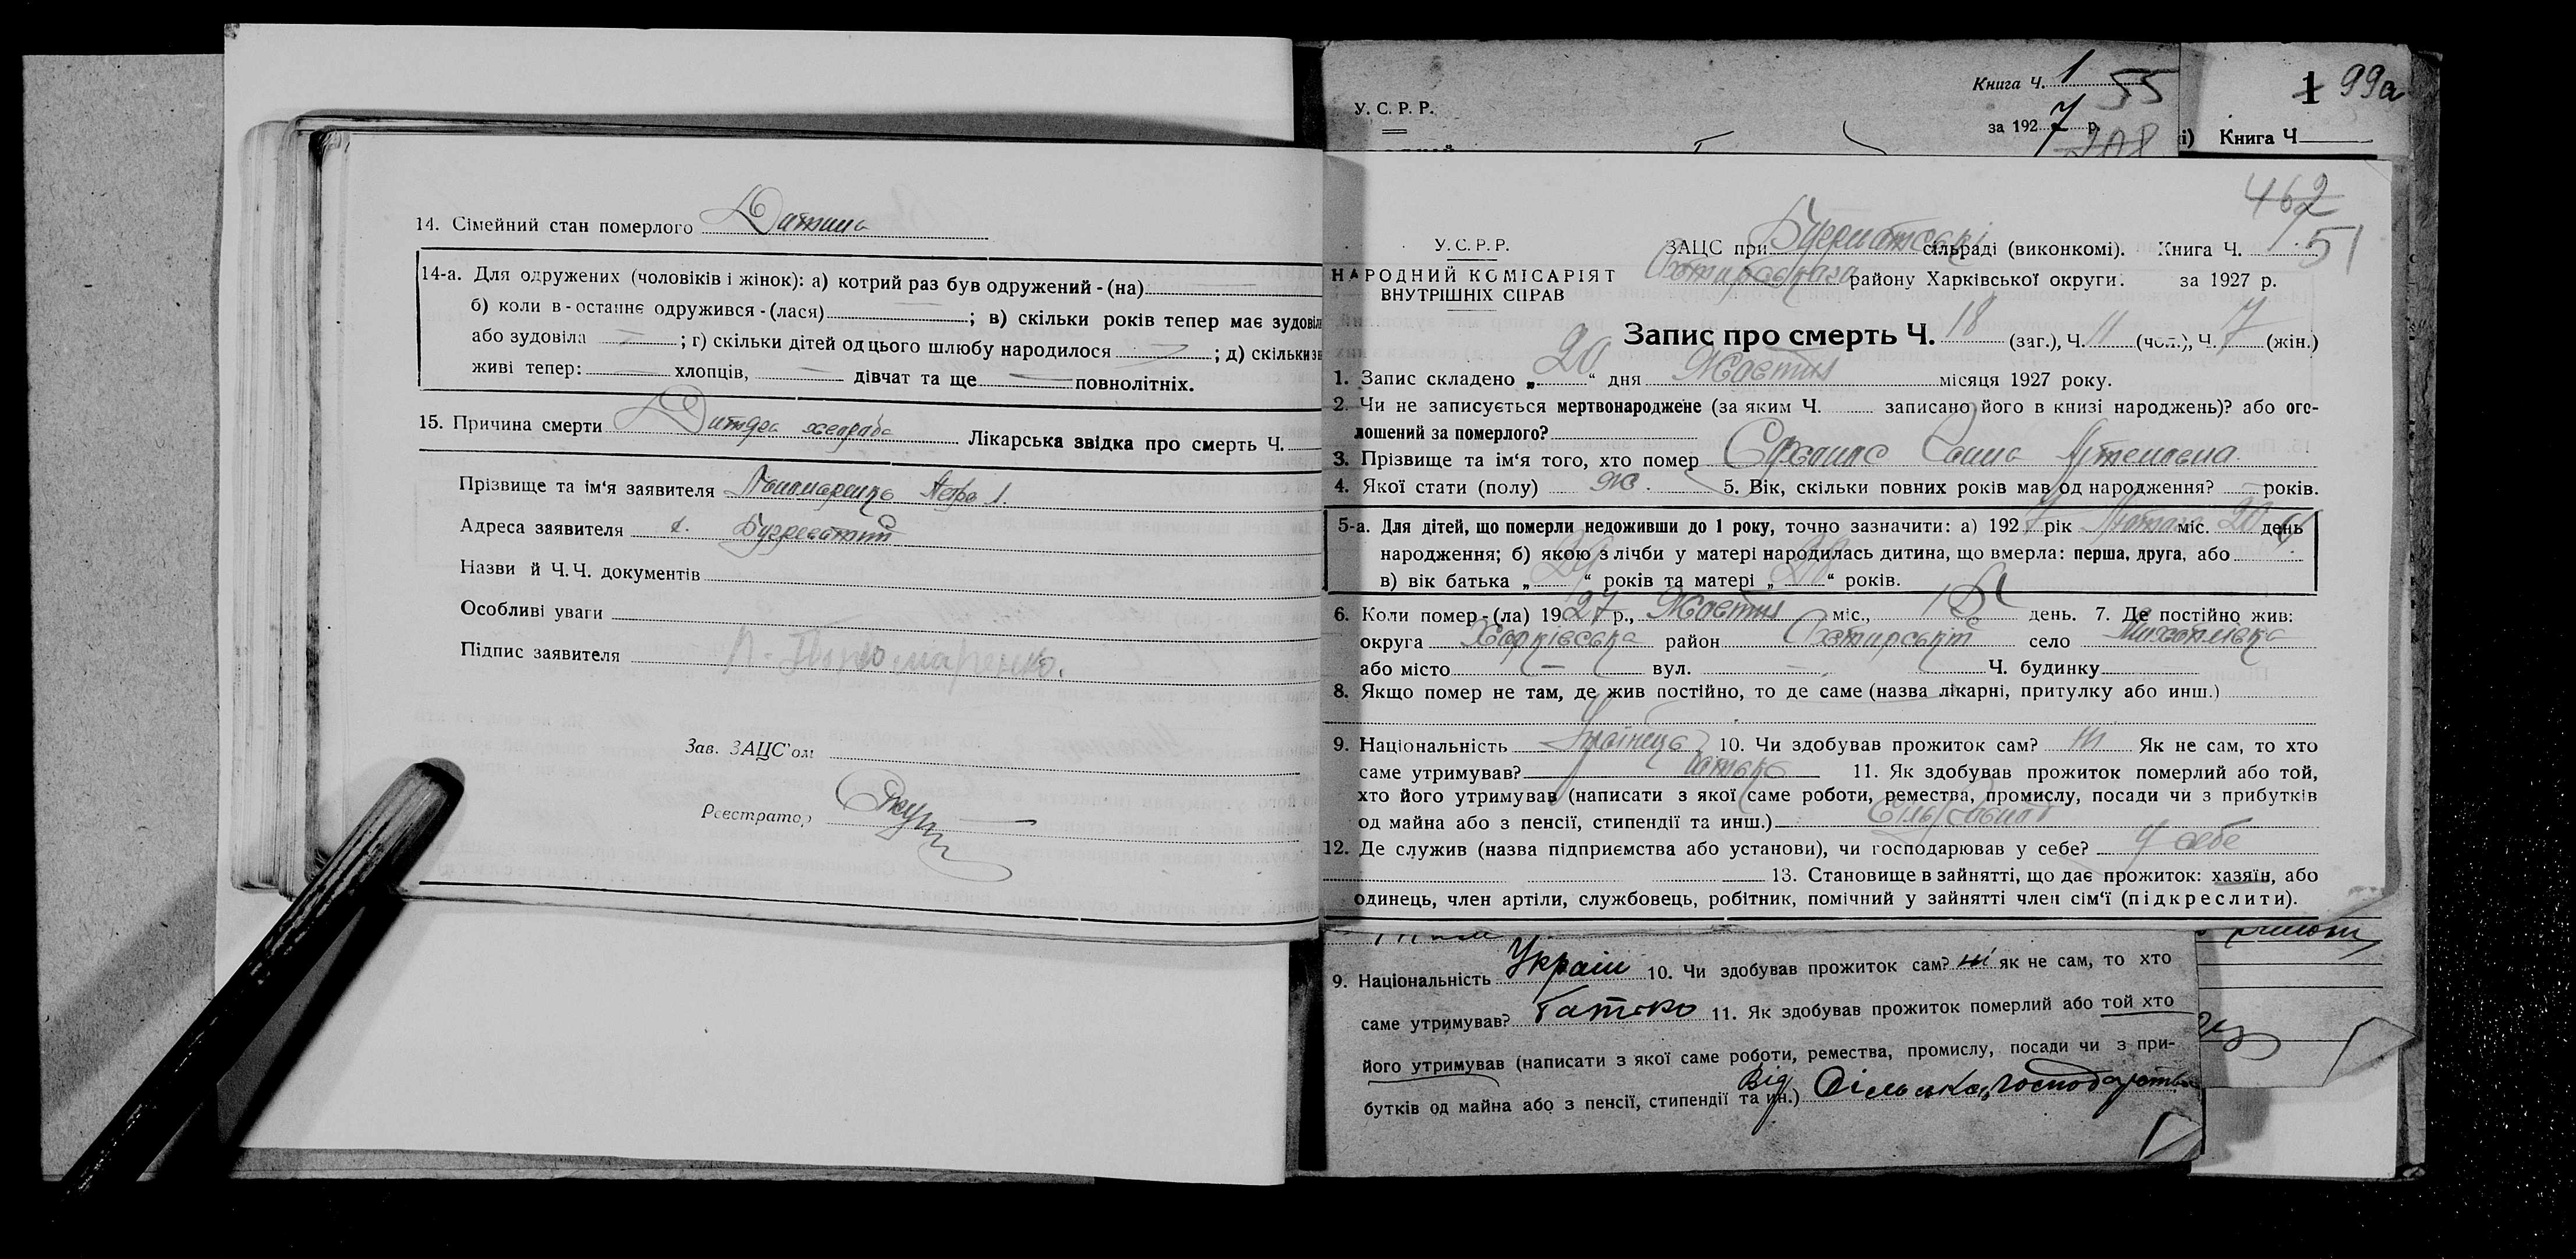 14. Сімейний стан померлого Дитина
14-а. Для одружених (чоловіків і жінок): а) котрий раз був одружений - (на)
б) коли в - останнє одружився - (лася) ; в) скільки років тепер має зудові
або зудовіла ; г) скільки дітей од цього шлюбу народилося ; д) скільки
живі тепер: хлопців, дівчат та ще повнолітніх.
15. Причина смерти Лікарська звідка про смерть Ч.
Прізвище та ім'я заявителя Пономаренко Петро
Адреса заявителя
Назви й Ч.Ч. документів
Особливі уваги
Підпис заявителя П. Пономаренко.
Зав. ЗАЦС'ом
Реєстратор
Книга Ч. 1 55
У. С. Р. Р.
за 1927 р.
208
1 99а
і) Книга Ч
462
51
У. С. Р. Р.
НАРОДНИЙ КОМІСАРІЯТ
ВНУТРІШНІХ СПРАВ
ЗАЦС при сільраді (виконкомі). Книга Ч.
району Харківської округи. за 1927 р.
Запис про смерть Ч. 18 (заг.), Ч. 11 (чол.), Ч. 7 (жін.)
1. Запис складено „ 20 “ дня Жовтня місяця 1927 року.
2. Чи не записується мертвонароджене (за яким Ч. записано його в книзі народжень)? або ого-
лошений за померлого?
3. Прізвище та ім'я того, хто помер
4. Якої стати (полу) жін. 5. Вік, скільки повних років мав од народження? років.
5-а. Для дітей, що померли недоживши до 1 року, точно зазначити: а) 1927 рік Лютого міс. 20 день
народження; б) якою з лічби у матері народилась дитина, що вмерла: перша, друга, або
в) вік батька „ 29 “ років та матері „ “ років.
6. Коли помер - (ла) 1927 р., Жовтня міс., день. 7. Де постійно жив:
округа Харківська район село
або місто — вул. — Ч. будинку
8. Якщо помер не там, де жив постійно, то де саме (назва лікарні, притулку або инш.)
9. Національність Українець 10. Чи здобував прожиток сам? ні Як не сам, то хто
саме утримував? батько 11. Як здобував прожиток померлий або той,
хто його утримував (написати з якої саме роботи, ремества, промислу, посади чи з прибутків
од майна або з пенсії, стипендії та инш.)
12. Де служив (назва підприємства або установи), чи господарював у себе? у себе
13. Становище в зайнятті, що дає прожиток: хазяїн, або
одинець, член артіли, службовець, робітник, помічний у зайнятті член сім'ї (підкреслити).
9. Національність Україн 10. Чи здобував прожиток сам? ні як не сам, то хто
саме утримував? батько 11. Як здобував прожиток померлий або той хто
його утримував (написати з якої саме роботи, ремества, промислу, посади чи з при-
бутків од майна або з пенсії, стипендії та ин.) Від Сільська господарства